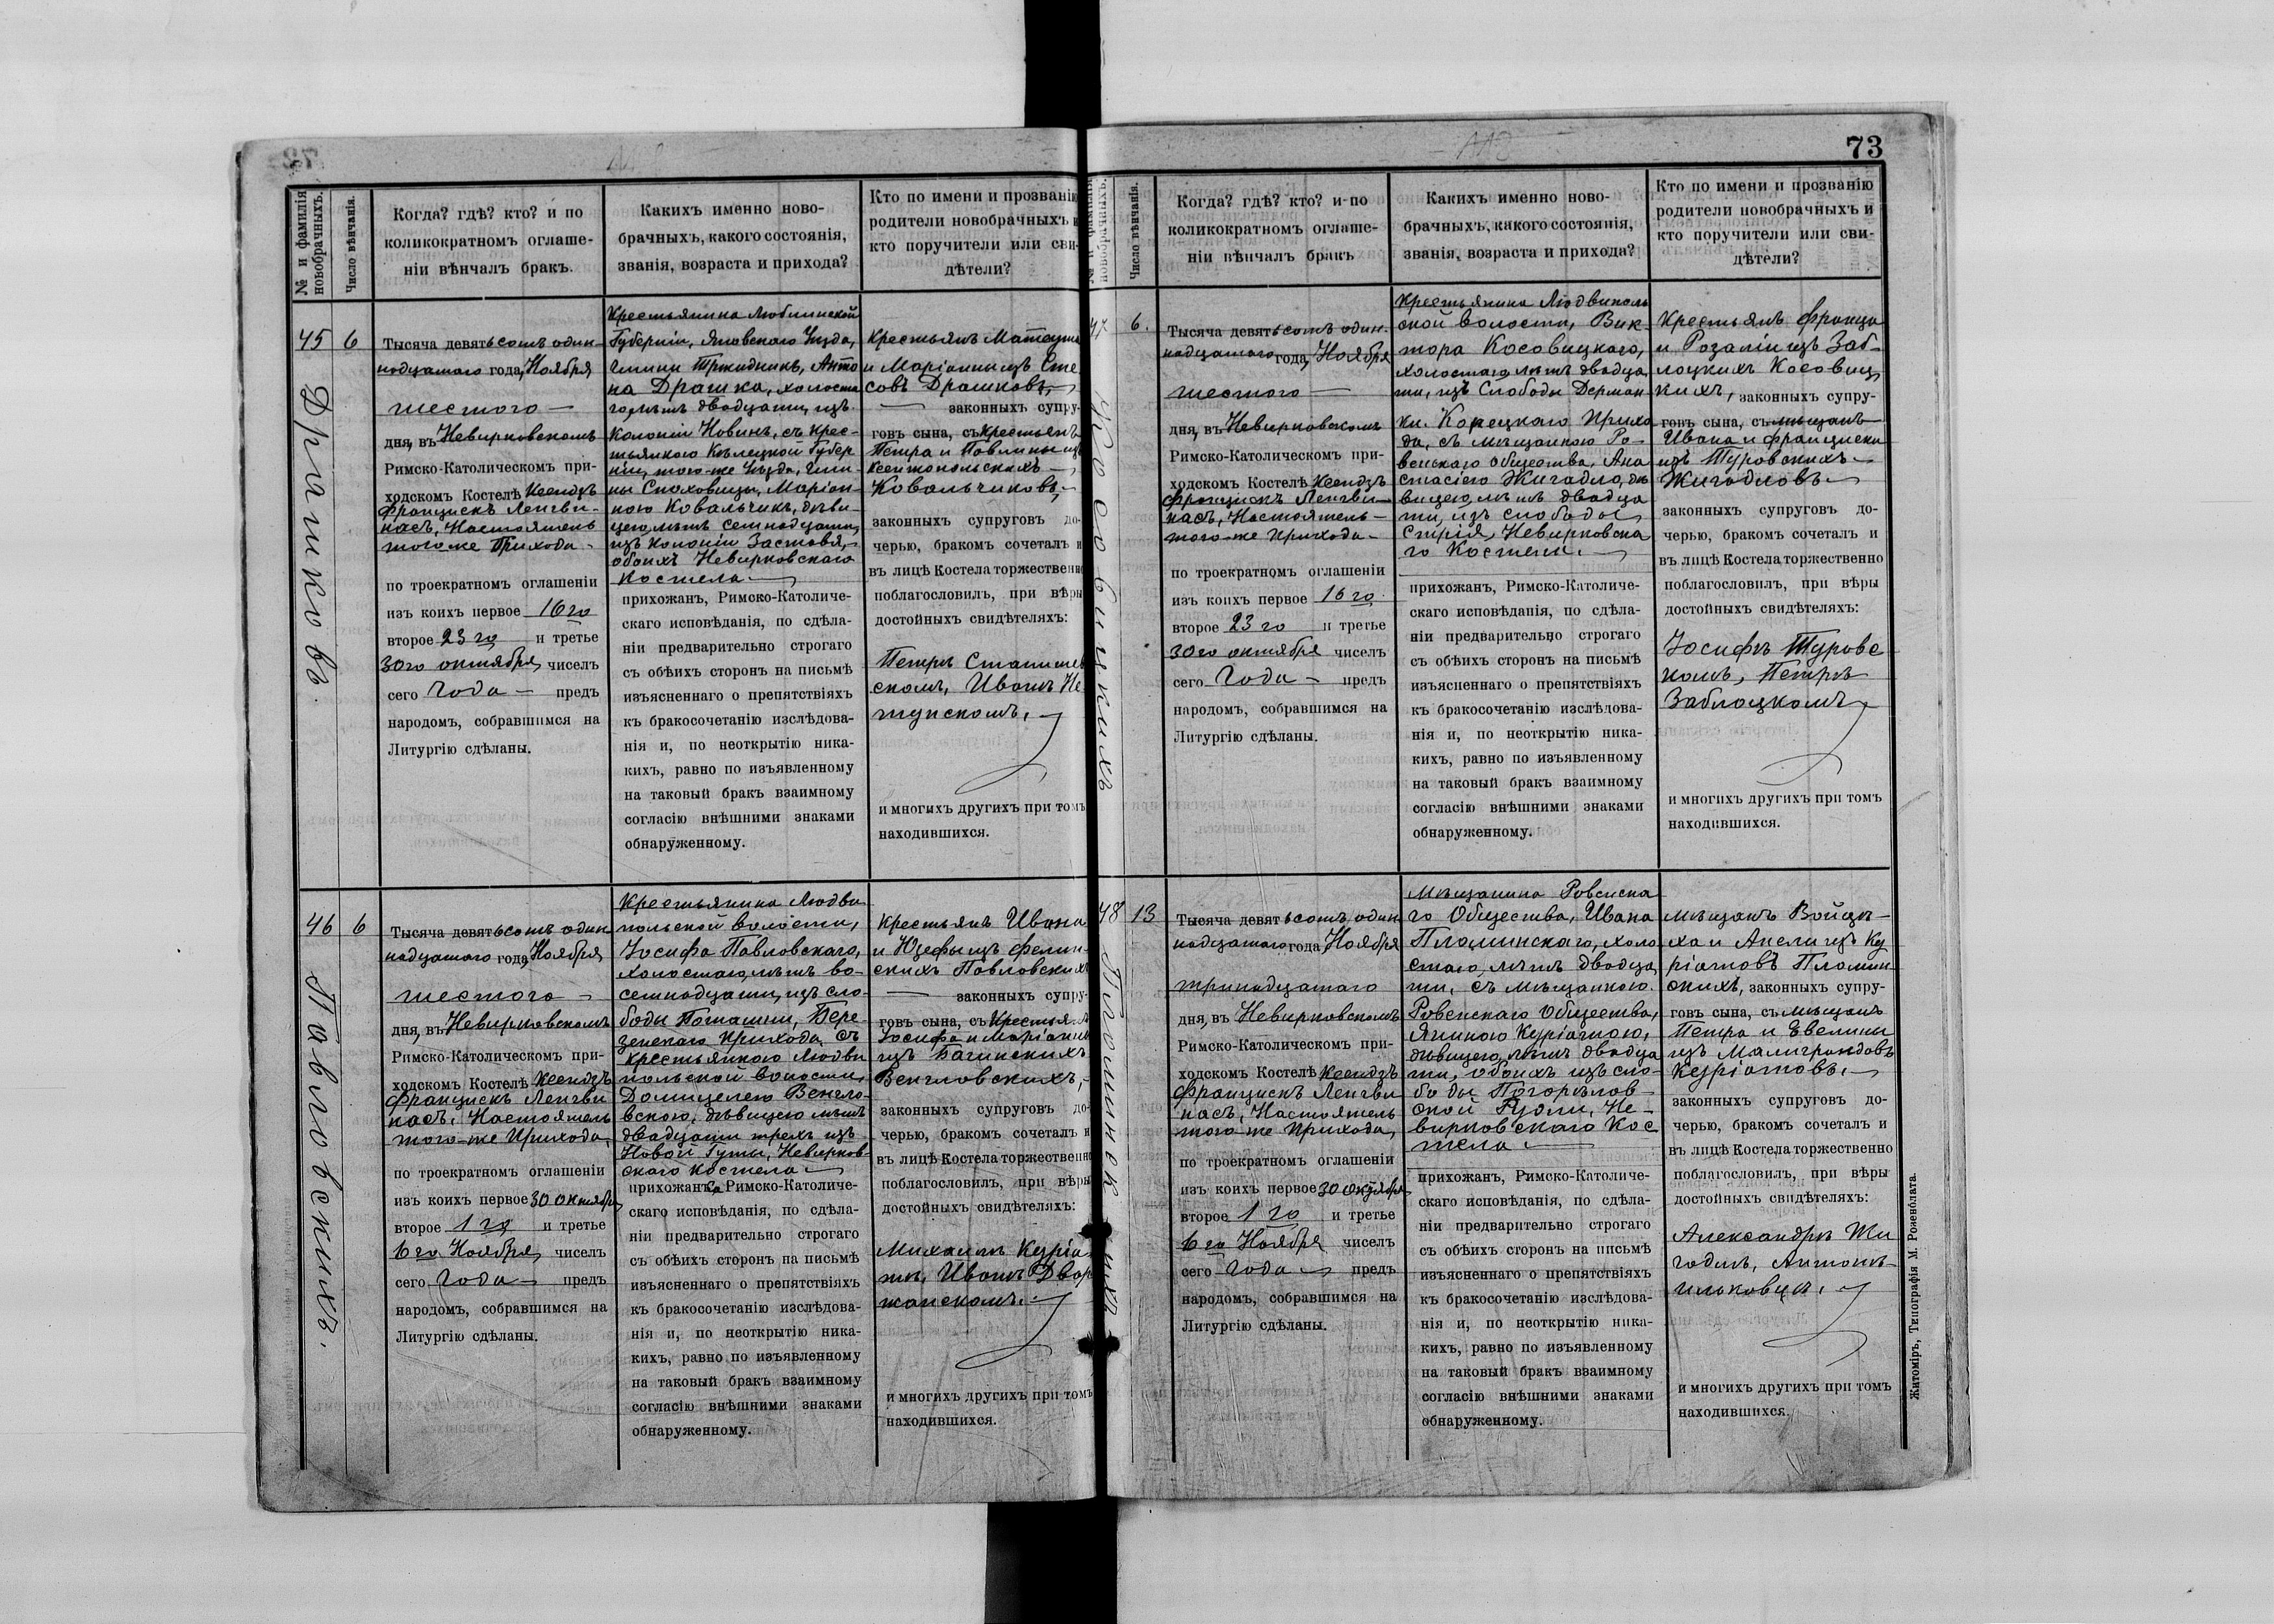 73
№ и фамилія новобрачныхъ.
Число вѣнчанія.
Когда? гдѣ? кто? и по
коликократномъ оглаше-
ніи вѣнчалъ бракъ.
Какихъ именно ново-
брачныхъ, какого состоянія,
званія, возраста и прихода?
Кто по имени и прозванію
родители новобрачныхъ и
кто поручители или сви-
дѣтели?
45
Драшковъ
6
Тысяча девятьсотъ один-
надцатого года, Ноября
шестого
дня, въ Невирковскомъ
Римско-Католическомъ при-
ходскомъ Костелѣ Ксендзъ
Францискъ Ленгви-
насъ, Настоятель
того-же Прихода
по троекратномъ оглашеніи
изъ коихъ первое 16го
второе 23го и третье
30го октября чиселъ
сего года предъ
народомъ, собравшимся на
Литургію сдѣланы.
Крестьянина Люблинской
Губерніи, Яновскаго Уѣзда,
Гмины Тржидникъ, Анто
на Драшка, холоста
го лѣтъ двадцати, изъ
Колоніи Новинъ, съ крес-
тьянкою Кѣлецкой Губер
ніи, того-же Уѣзда, Гми-
ны Снохович, Маріан-
ною Ковальчикъ, дѣви-
цею, лѣтъ семнадцати,
изъ колоніи Заставя,
обоихъ Невирковскаго
Костела
прихожанъ, Римско-Католиче-
скаго исповѣданія, по сдѣла-
ніи предварительно строгаго
съ обѣихъ сторонъ на письмѣ
изъясненнаго о препятствіяхъ
къ бракосочетанію изслѣдова-
нія и, по неоткрытію ника-
кихъ, равно по изъявленному
на таковый бракъ взаимному
согласію внѣшними знаками
обнаруженному.
Крестьянъ Матеуша
и Маріанны изъ Сте
совъ Драшковъ,
законныхъ супру-
говъ сына, съ крестьянъ
Петра и Павлины изъ
Ксентопольскихъ
Ковальчиковъ,
законныхъ супруговъ до-
черью, бракомъ сочеталъ и
въ лицѣ Костела торжественно
поблагословилъ, при вѣры
достойныхъ свидѣтеляхъ:
скомъ, Иваномъ
и многихъ другихъ при томъ
находившихся.
46
Павловскихъ.
6
Тысяча девятьсотъ один
надцатого года, Ноября
шестого
дня, въ Невирковскомъ
Римско-Католическомъ при-
ходскомъ Костелѣ Ксендзъ
Францискъ Ленгви
насъ, Настоятель
того-же Прихода,
по троекратномъ оглашеніи
изъ коихъ первое 30 октября
второе 1го и третье
6го Ноября чиселъ
сего года предъ
народомъ, собравшимся на
Литургію сдѣланы.
Крестьянина Людви
польской волости,
Іосифа Павловскаго,
холостаго, лѣтъ во-
семнадцати, изъ сло-
боды Поташни, Бере-
знскаго Прихода, съ
крестьянкою Людви
польской волости,
Домицелею Венгло-
вскою, дѣвицею лѣтъ
двадцати трехъ изъ
Новой Гуты, Невирков-
скаго костела
прихожанъ, Римско-Католиче-
скаго исповѣданія, по сдѣла-
ніи предварительно строгаго
съ обѣихъ сторонъ на письмѣ
изъясненнаго о препятствіяхъ
къ бракосочетанію изслѣдова-
нія и, по неоткрытію ника-
кихъ, равно по изъявленному
на таковый бракъ взаимному
согласію внѣшними знаками
обнаруженному.
Крестьянъ Ивана
и Юзефы изъ Фелин-
скихъ Павловскихъ
законныхъ супру-
говъ сына, съ Крестьянъ
Іосифа и Маріанны
изъ Багинскихъ
Венгловскихъ,
законныхъ супруговъ до-
черью, бракомъ сочеталъ и
въ лицѣ Костела торжественно
поблагословилъ, при вѣры
достойныхъ свидѣтеляхъ:
Михаилъ Куріа
тъ, Иванъ Двор
жанскомъ.
и многихъ другихъ при томъ
находившихся.
№ и фамилія новобрачныхъ.
Число вѣнчанія.
Когда? гдѣ? кто? и по
коликократномъ оглаше-
ніи вѣнчалъ бракъ
Какихъ именно ново-
брачныхъ, какого состоянія,
званія, возраста и прихода?
Кто по имени и прозванію
родители новобрачныхъ и
кто поручители или сви-
дѣтели?
47
Косовицкихъ
6.
Тысяча девятьсотъ один-
надцатого года, Ноября
шестого
дня, въ Невирковскомъ
Римско-Католическомъ при-
ходскомъ Костелѣ Ксендзъ
Францискъ Ленгви-
насъ, Настоятель
того-же Прихода
по троекратномъ оглашеніи
изъ коихъ первое 16го
второе 23го и третье
30го октября чиселъ
сего года предъ
народомъ, собравшимся на
Литургію сдѣланы.
Крестьянина Людвиполь
ской волости, Вик-
тора Косовицкого,
холостаго лѣтъ двадца
ти, изъ Слободы Дерман
ки, Корецкаго Прихо
да, съ мѣщанкою Ро-
венскаго Общества, Ана
стасіею Жигадло, дѣ
вицею, лѣтъ двадца
ти, изъ слободы
Стрія, Невирковска
го Костела
прихожанъ, Римско-Католиче-
скаго исповѣданія, по сдѣла-
ніи предварительно строгаго
съ обѣихъ сторонъ на письмѣ
изъясненнаго о препятствіяхъ
къ бракосочетанію изслѣдова-
нія и, по неоткрытію ника-
кихъ, равно по изъявленному
на таковый бракъ взаимному
согласію внѣшними знаками
обнаруженному.
Крестьянъ Франца
и Розаліи изъ Заб-
лоцкихъ Косовиц
кихъ, законныхъ супру-
говъ сына, съ мѣщанъ
Ивана и Франциски
изъ Туровскихъ
Жигадловъ
законныхъ супруговъ до-
черью, бракомъ сочеталъ и
въ лицѣ Костела торжественно
поблагословилъ, при вѣры
достойныхъ свидѣтеляхъ:
Іосифъ Туровс
комъ, Петръ
Заблоцкомъ
и многихъ другихъ при томъ
находившихся.
48
Пломинскихъ
13
Тысяча девятьсотъ один
надцатого года, Ноября
тринадцатаго
дня, въ Невирковскомъ
Римско-Католическомъ при-
ходскомъ Костелѣ Ксендзъ
Францискъ Ленгви
насъ, Настоятель
того-же Прихода,
по троекратномъ оглашеніи
изъ коихъ первое 30 октября
второе 1го и третье
6го Ноября чиселъ
сего года предъ
народомъ, собравшимся на
Литургію сдѣланы.
Мѣщанина Ровенска
го Общества, Ивана
Пломинскаго, холо
стаго, лѣтъ двадца
ти, съ мѣщанкою
Ровенскаго Общества,
Яниною Куріатою,
дѣвицею, лѣтъ двадца
ти, обоихъ изъ сло-
боды Погорѣлов-
ской Рудни, Не-
вирковскаго Кос
тела
прихожанъ, Римско-Католиче-
скаго исповѣданія, по сдѣла-
ніи предварительно строгаго
съ обѣихъ сторонъ на письмѣ
изъясненнаго о препятствіяхъ
къ бракосочетанію изслѣдова-
нія и, по неоткрытію ника-
кихъ, равно по изъявленному
на таковый бракъ взаимному
согласію внѣшними знаками
обнаруженному.
мѣщанъ Войцѣ-
ха и Анели изъ Ку
ріатовъ Пломин-
скихъ, законныхъ супру-
говъ сына, съ мѣщанъ
Петра и Эвелины
изъ Малиграндовъ
Куріатовъ,
законныхъ супруговъ до-
черью, бракомъ сочеталъ и
въ лицѣ Костела торжественно
поблагословилъ, при вѣры
достойныхъ свидѣтеляхъ:
Александръ Жи
гадлъ, Антонъ
и многихъ другихъ при томъ
находившихся.
Житоміръ, Типографія М. Розенблата.